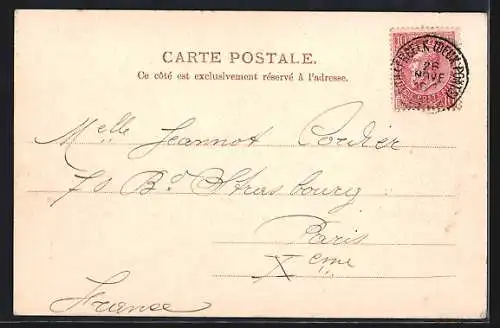 CARTE POSTALE.
Ce côté est exclusivement réservé à l'adresse.
10
26
NOVE
Melle Jeannot Cordier
70 Bd Strasbourg
Paris
Xeme
France